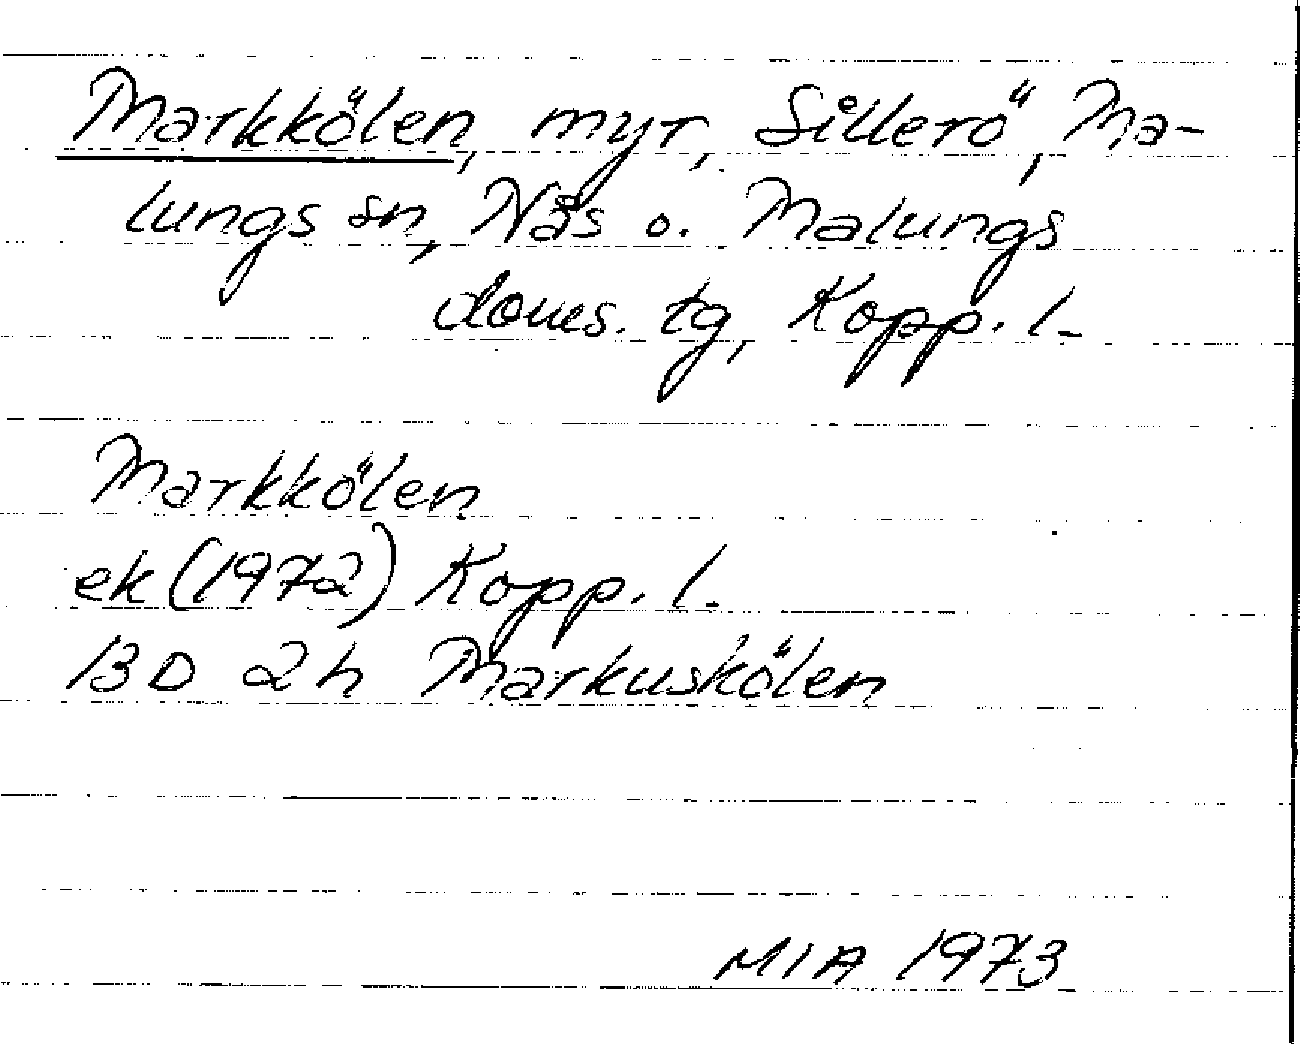 Markkölen, myr, Sillerö, Ma-
lungs sn, Nås o. Malungs
doms. tg, Kopp. l.
Markkölen
ek (1972) Kopp. l.
13D 2h Markuskölen
MIA 1973